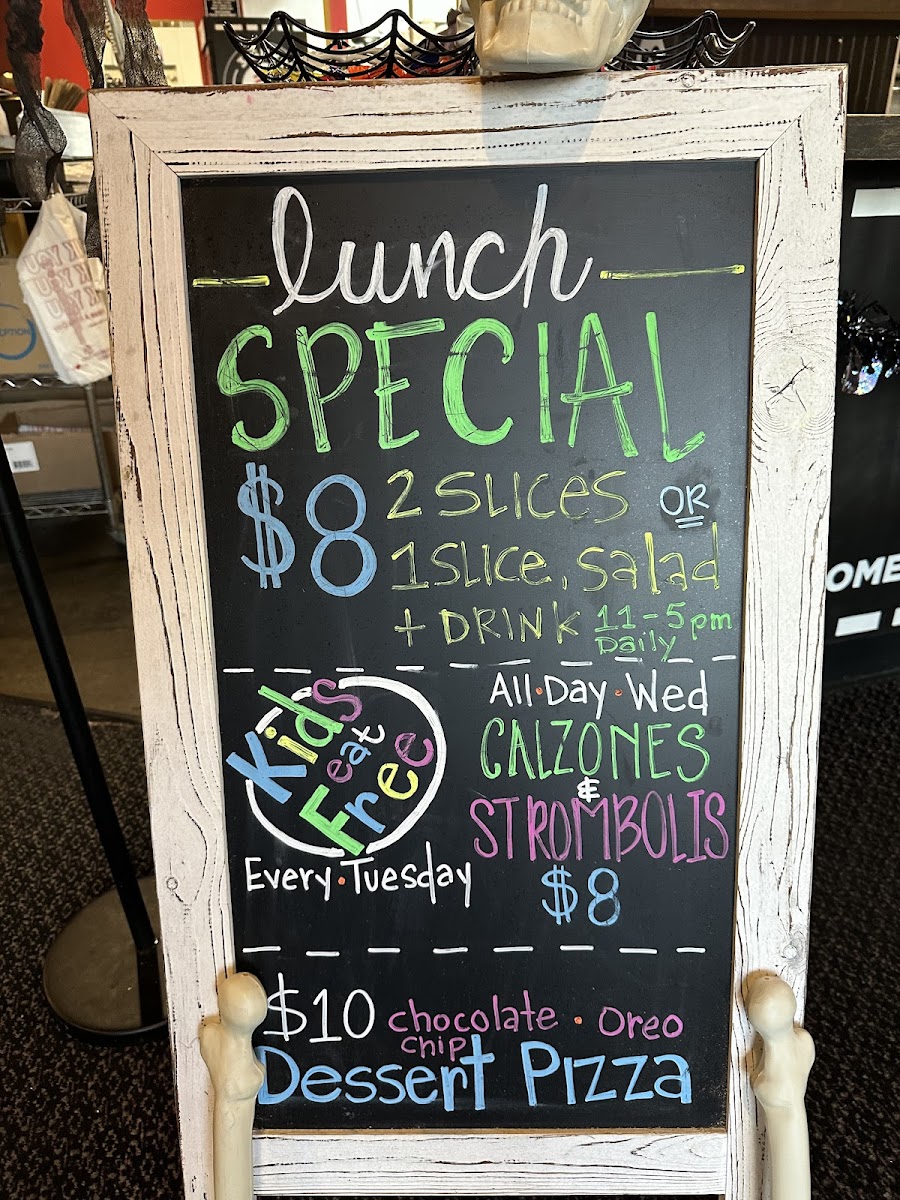 lunch
SPECIAL
$8 2 SLICES OR
1 SLICE, Salad
+ DRINK 11-5pm
Daily
Kids
eat
Free
Every·Tuesday
All·Day·Wed
CALZONES
&
STROMBOLIS
$8
$10 chocolate · Oreo
chip
Dessert Pizza
OME